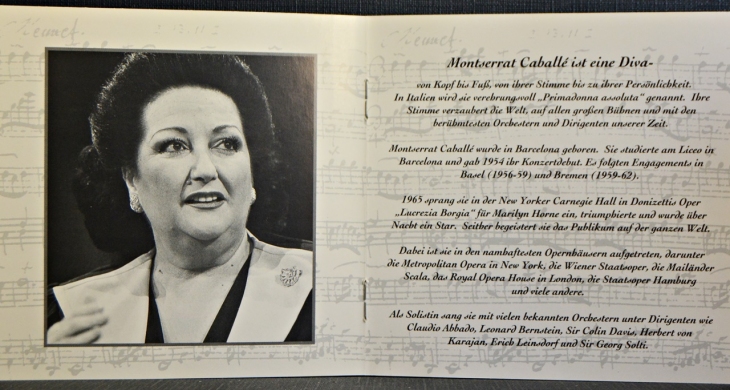 Menuet
Menuet
Montserrat Caballé ist eine Diva-
von Kopf bis Fuß, von ihrer Stimme bis zu ihrer Persönlichkeit.
In Italien wird sie verehrungsvoll „Primadonna assoluta" genannt. Ihre
Stimme verzaubert die Welt, auf allen großen Bühnen und mit den
berühmtesten Orchestern und Dirigenten unserer Zeit.
Montserrat Caballé wurde in Barcelona geboren. Sie studierte am Liceo in
Barcelona und gab 1954 ihr Konzertdebut. Es folgten Engagements in
Basel (1956-59) und Bremen (1959-62).
1965 sprang sie in der New Yorker Carnegie Hall in Donizettis Oper
„Lucrezia Borgia" für Marilyn Horne ein, triumphierte und wurde über
Nacht ein Star. Seither begeistert sie das Publikum auf der ganzen Welt.
Dabei ist sie in den namhaftesten Opernhäusern aufgetreten, darunter
die Metropolitan Opera in New York, die Wiener Staatsoper, die Mailänder
Scala, das Royal Opera House in London, die Staatsoper Hamburg
und viele andere.
Als Solistin sang sie mit vielen bekannten Orchestern unter Dirigenten wie
Claudio Abbado, Leonard Bernstein, Sir Colin Davis, Herbert von
Karajan, Erich Leinsdorf und Sir Georg Solti.